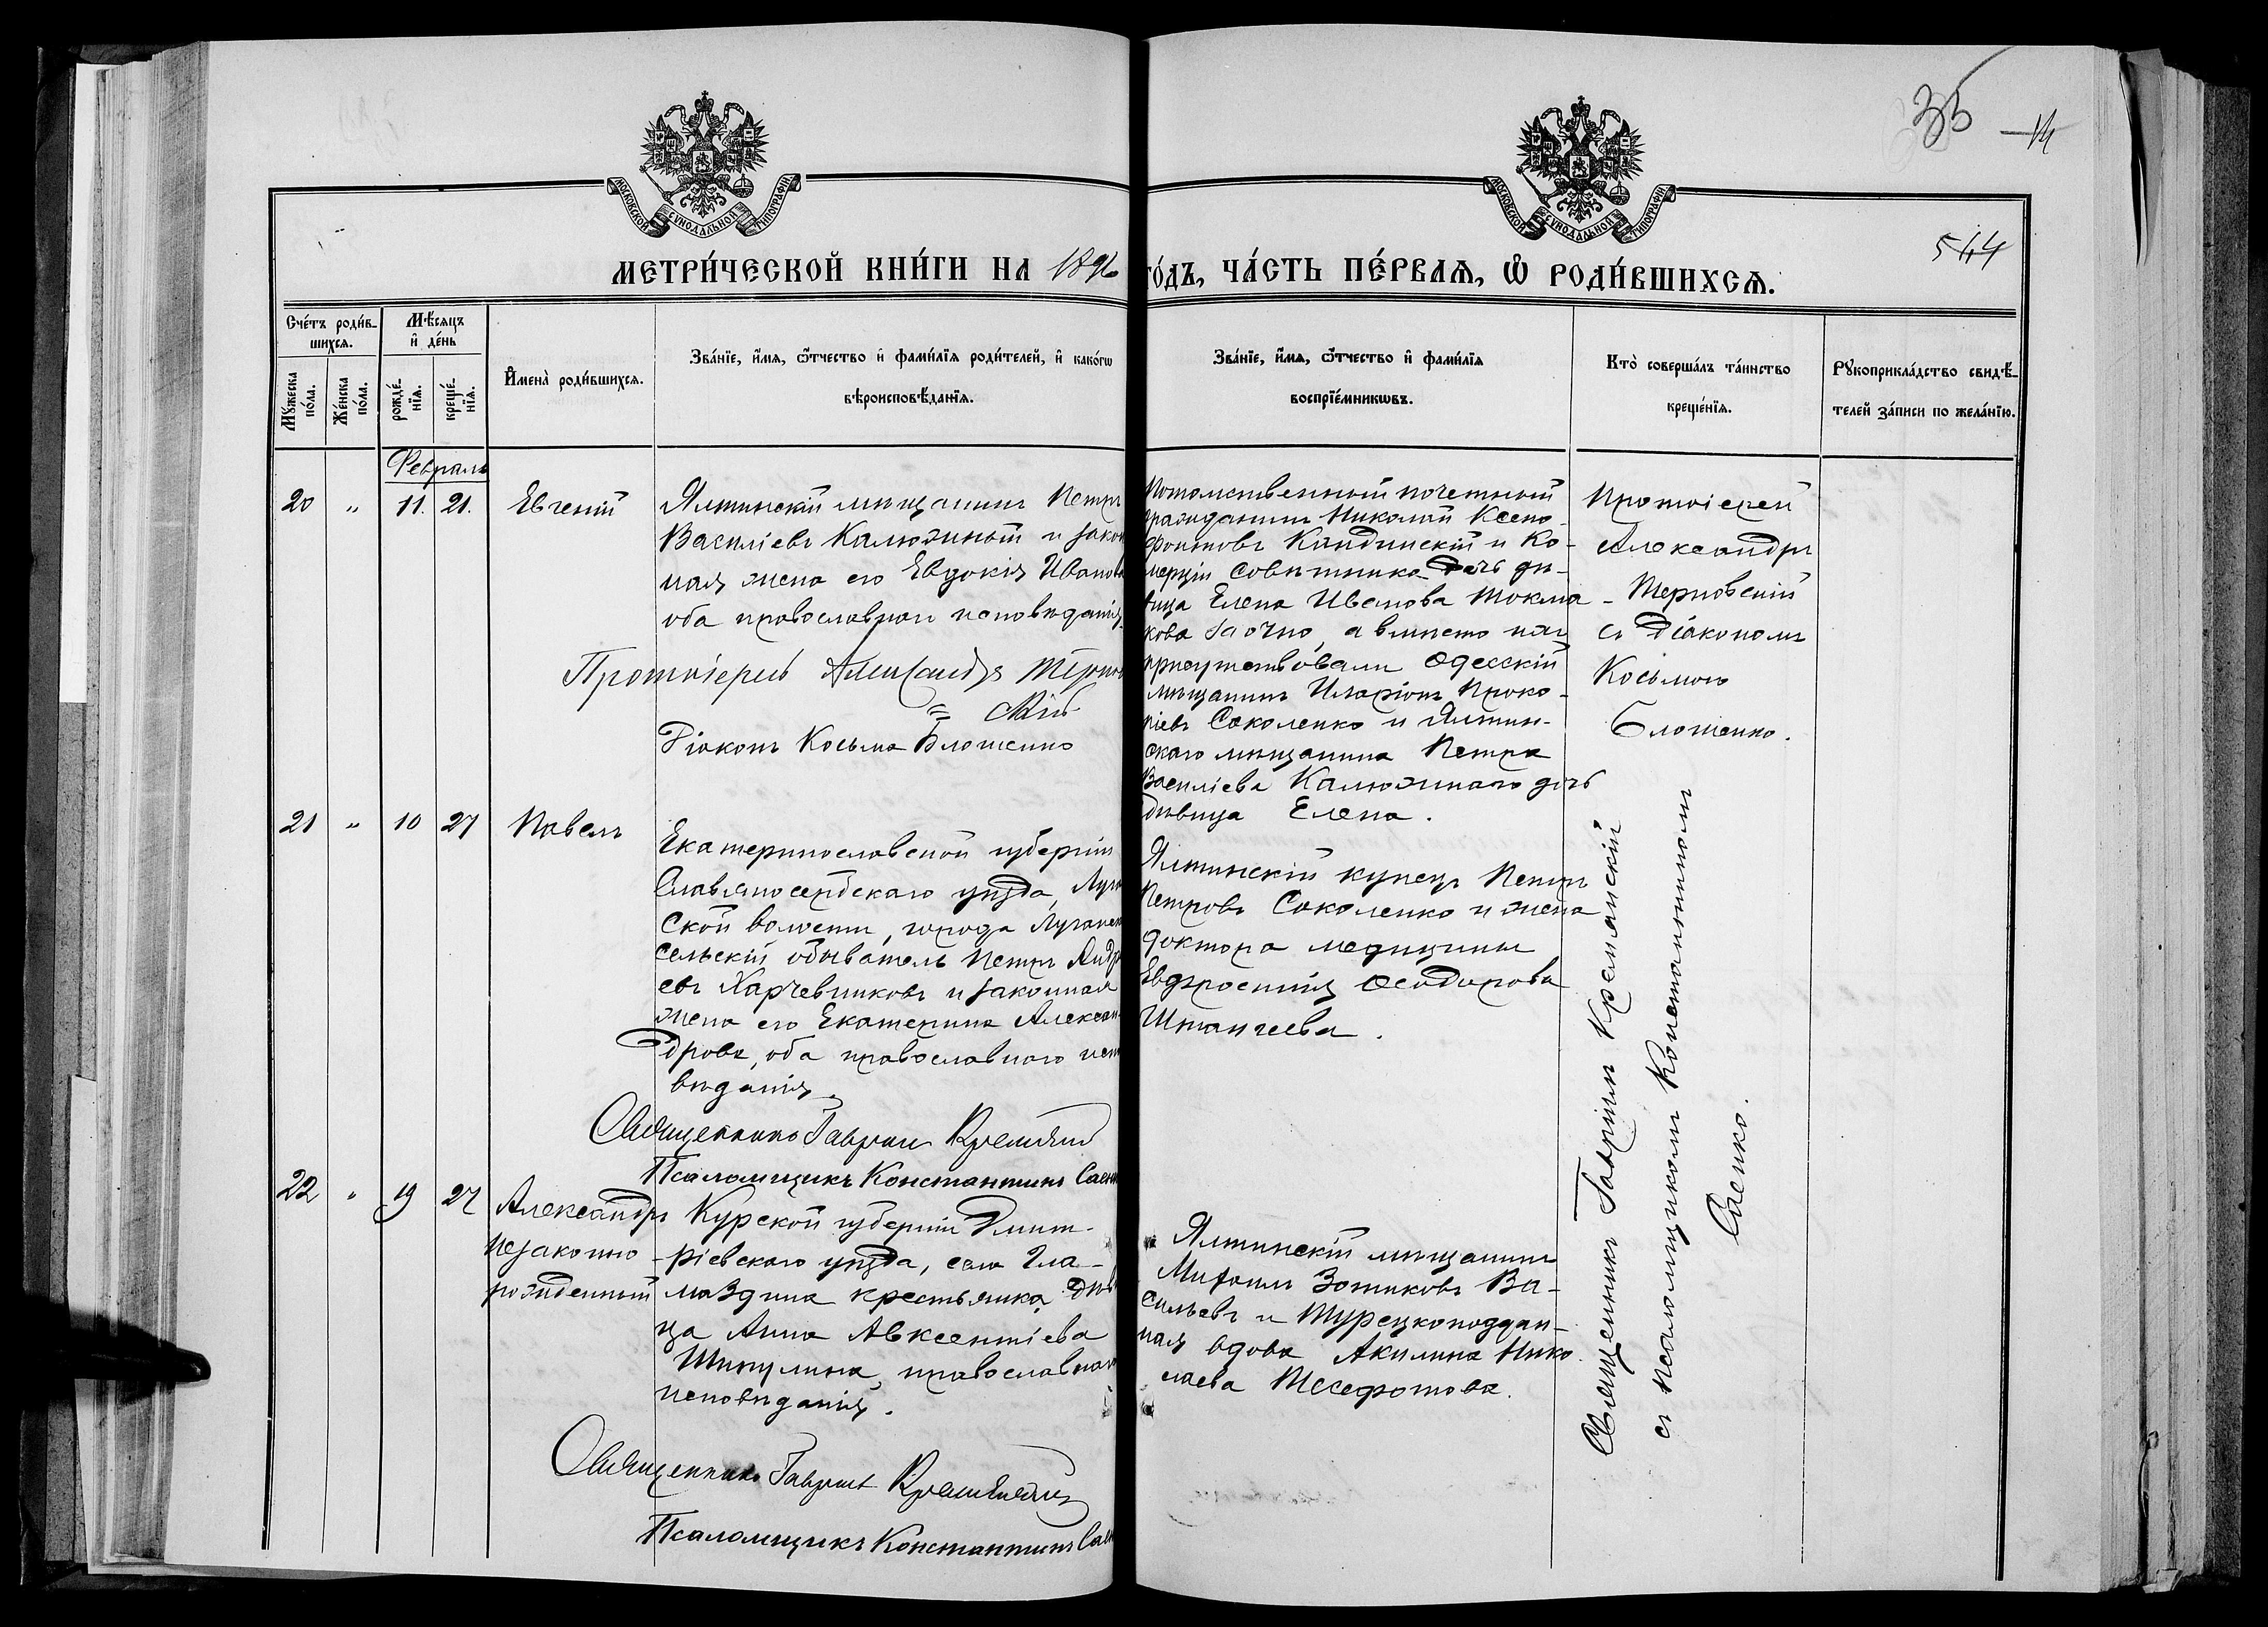 35
14
544
МОСКОВСКОЙ СѴНОДАЛЬНОЙ ТИПОГРАФІИ.
МОСКОВСКОЙ СѴНОДАЛЬНОЙ ТИПОГРАФІИ.
МЕТРИ́ЧЕСКОЙ КНИ́ГИ НА 1896
ГО́ДЪ, ЧА́СТЬ ПЕ́РВАѦ, Ѡ҆ РОДИ́ВШИХСѦ.
Сче́тъ роди́в-
шихсѧ.
Мꙋ́жеска
по́ла.
Же́нска
по́ла.
Мѣ́сѧцъ
и҆ де́нь
рожде́-
нїѧ.
креще́-
нїѧ.
И҆мена̀ роди́вшихсѧ.
Зва́нїе, и҆́мѧ, ѻ҆́тчество и҆ фами́лїѧ роди́телей, и҆ како́гѡ
вѣроисповѣ́данїѧ.
Зва́нїе, и҆́мѧ, ѻ҆́тчество и҆ фами́лїѧ
воспрїе́мникѡвъ.
Кто̀ соверша́лъ та́инство
креще́нїѧ.
Рꙋкоприкла́дство свидѣ́-
телей за́писи по жела́нїю.
Февраль
20 " 11. 21. Евгеній
Ялтинскій мѣщанинъ Петръ
Василіевъ Калюжный и закон
ная жена его Евдокія Иванова
оба православнаго исповѣданія.
Протоіерей Александръ Тернов
= скій
Діаконъ Косьма Блошенко
Потомственный почетный
гражданинъ Николай Ксено-
фонтовъ Кандинскій и Ко-
мерціи совѣтника дочь дѣ-
вица Елена Иванова Токма-
кова заочно, а вмѣсто нихъ
присутствовали Одесскій
мѣщанинъ Иларіонъ Проко-
піевъ Соколенко и Ялтин-
скаго мѣщанина Петра
Василіева Калюжнаго дочь
дѣвица Елена.
Протоіерей
Александръ
- Терновскій
съ Діакономъ
Косьмою
Блошенко.
21 " 10 27 Павелъ
Екатеринославской губерніи
Славяносербскаго уѣзда, Луган
ской волости, города Луганска
сельскій обыватель Петръ Андре
евъ Харчевниковъ и законная
жена его Екатерина Алексан-
дрова, оба православнаго испо
вѣданія.
Священникъ Гавріилъ Кремянскій
Псаломщикъ Константинъ Саенк
Ялтинскій купецъ Петръ
Петровъ Соколенко и жена
доктора медицины
Евфросинія Ѳеодорова
Штангеева.
22 " 19 27 Александръ
незаконно
рожденный
Курской губерніи Дмит-
ріевскаго уѣзда, села Гла-
маздина крестьянка дѣви
ца Анна Авксентіева
Шипулина, православнаго
исповѣданія.
Священникъ Гавріилъ Кремянскій
Псаломщикъ Константинъ Сае
Ялтинскій мѣщанинъ
Михаилъ Зотиковъ Ва-
сильевъ и Турецкоподдан-
ная вдова Акилина Нико-
лаева
Священникъ Гавріилъ Кремянскій
съ псаломщикомъ Константиномъ
Саенко.